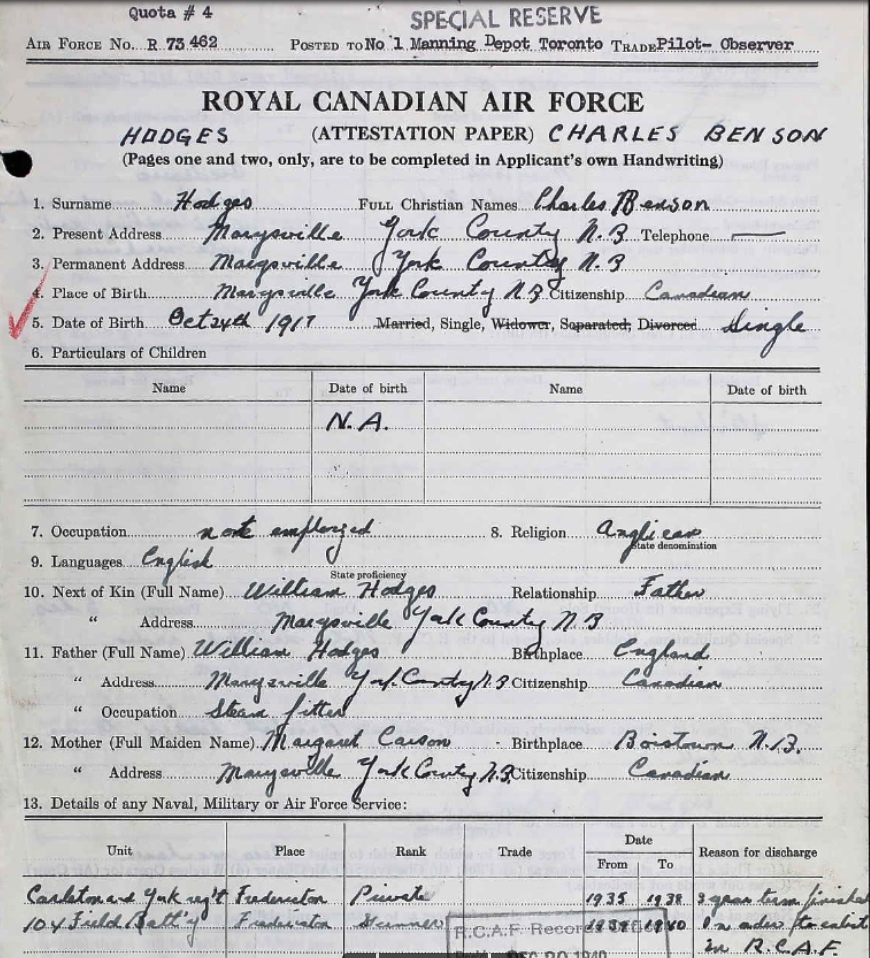 Quota # 4
SPECIAL RESERVE
AIR FORCE No. R 73 462 POSTED TO No 1 Manning Depot Toronto TRADE Pilot- Observer
ROYAL CANADIAN AIR FORCE
HODGES (ATTESTATION PAPER) CHARLES BENSON
(Pages one and two, only, are to be completed in Applicant's own Handwriting)
1. Surname Hodges FULL Christian Names Charles Benson
2. Present Address Marysville York County N.B Telephone —
3. Permanent Address Marysville York County N.B
4. Place of Birth Marysville York County N.B Citizenship Canadian
5. Date of Birth Oct 24th 1917 Married, Single, Widower, Separated, Divorced Single
6. Particulars of Children
Name Date of birth Name Date of birth
N.A.
7. Occupation not employed 8. Religion Anglican
State denomination
9. Languages English
State proficiency
10. Next of Kin (Full Name) William Hodges Relationship Father
" Address Marysville York County N.B
11. Father (Full Name) William Hodges Birthplace England
" Address Marysville York County N.B Citizenship Canadian
" Occupation Steam fitter
12. Mother (Full Maiden Name) Margaret Carson Birthplace Boistown N.B.
" Address Marysville York County N.B Citizenship Canadian
13. Details of any Naval, Military or Air Force Service:
Unit Place Rank Trade Date From To Reason for discharge
Carleton and York reg't Fredericton Private 1935 1938 3 year term finished
104 Field Batt'y Fredericton Gunner 1940 In order to enlist
in R.C.A.F.
R.C.A.F. Records Office